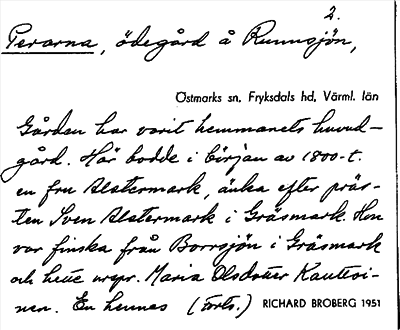 2.
Perarna, ödegård å Runnsjön,
Östmarks sn, Fryksdals hd, Värml. län
Gården har varit hemmanets huvud-
gård. Här bodde i början av 1800-t.
en fru Alstermark, änka efter präs-
ten Sven Alstermark i Gräsmark. Hon
var finska från Borrsjön i Gräsmark
och hette urspr. Maria Olsdotter Kautoi-
nen. En hennes (forts.) RICHARD BROBERG 1951